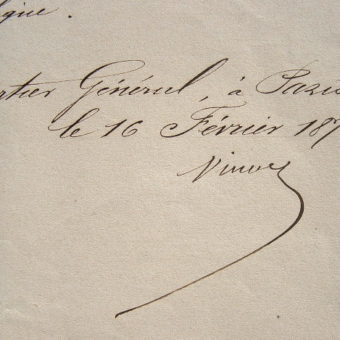 gue.
rtier Général, à Paris
le 16 Février 187
Vinoy